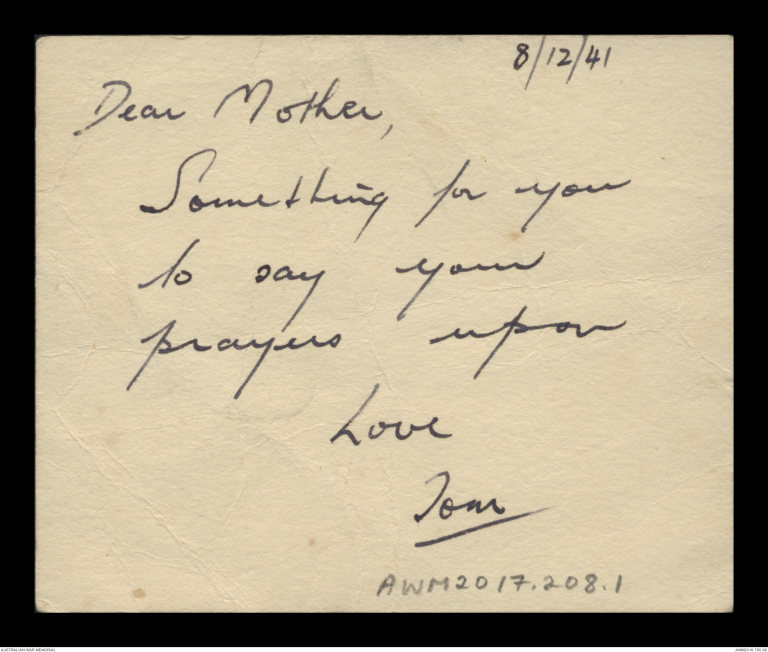 8/12/41
Dear Mother,
Something for you
to say your
prayers upon
Love
Tom
AWM2017.208.1
AUSTRALIAN WAR MEMORIAL